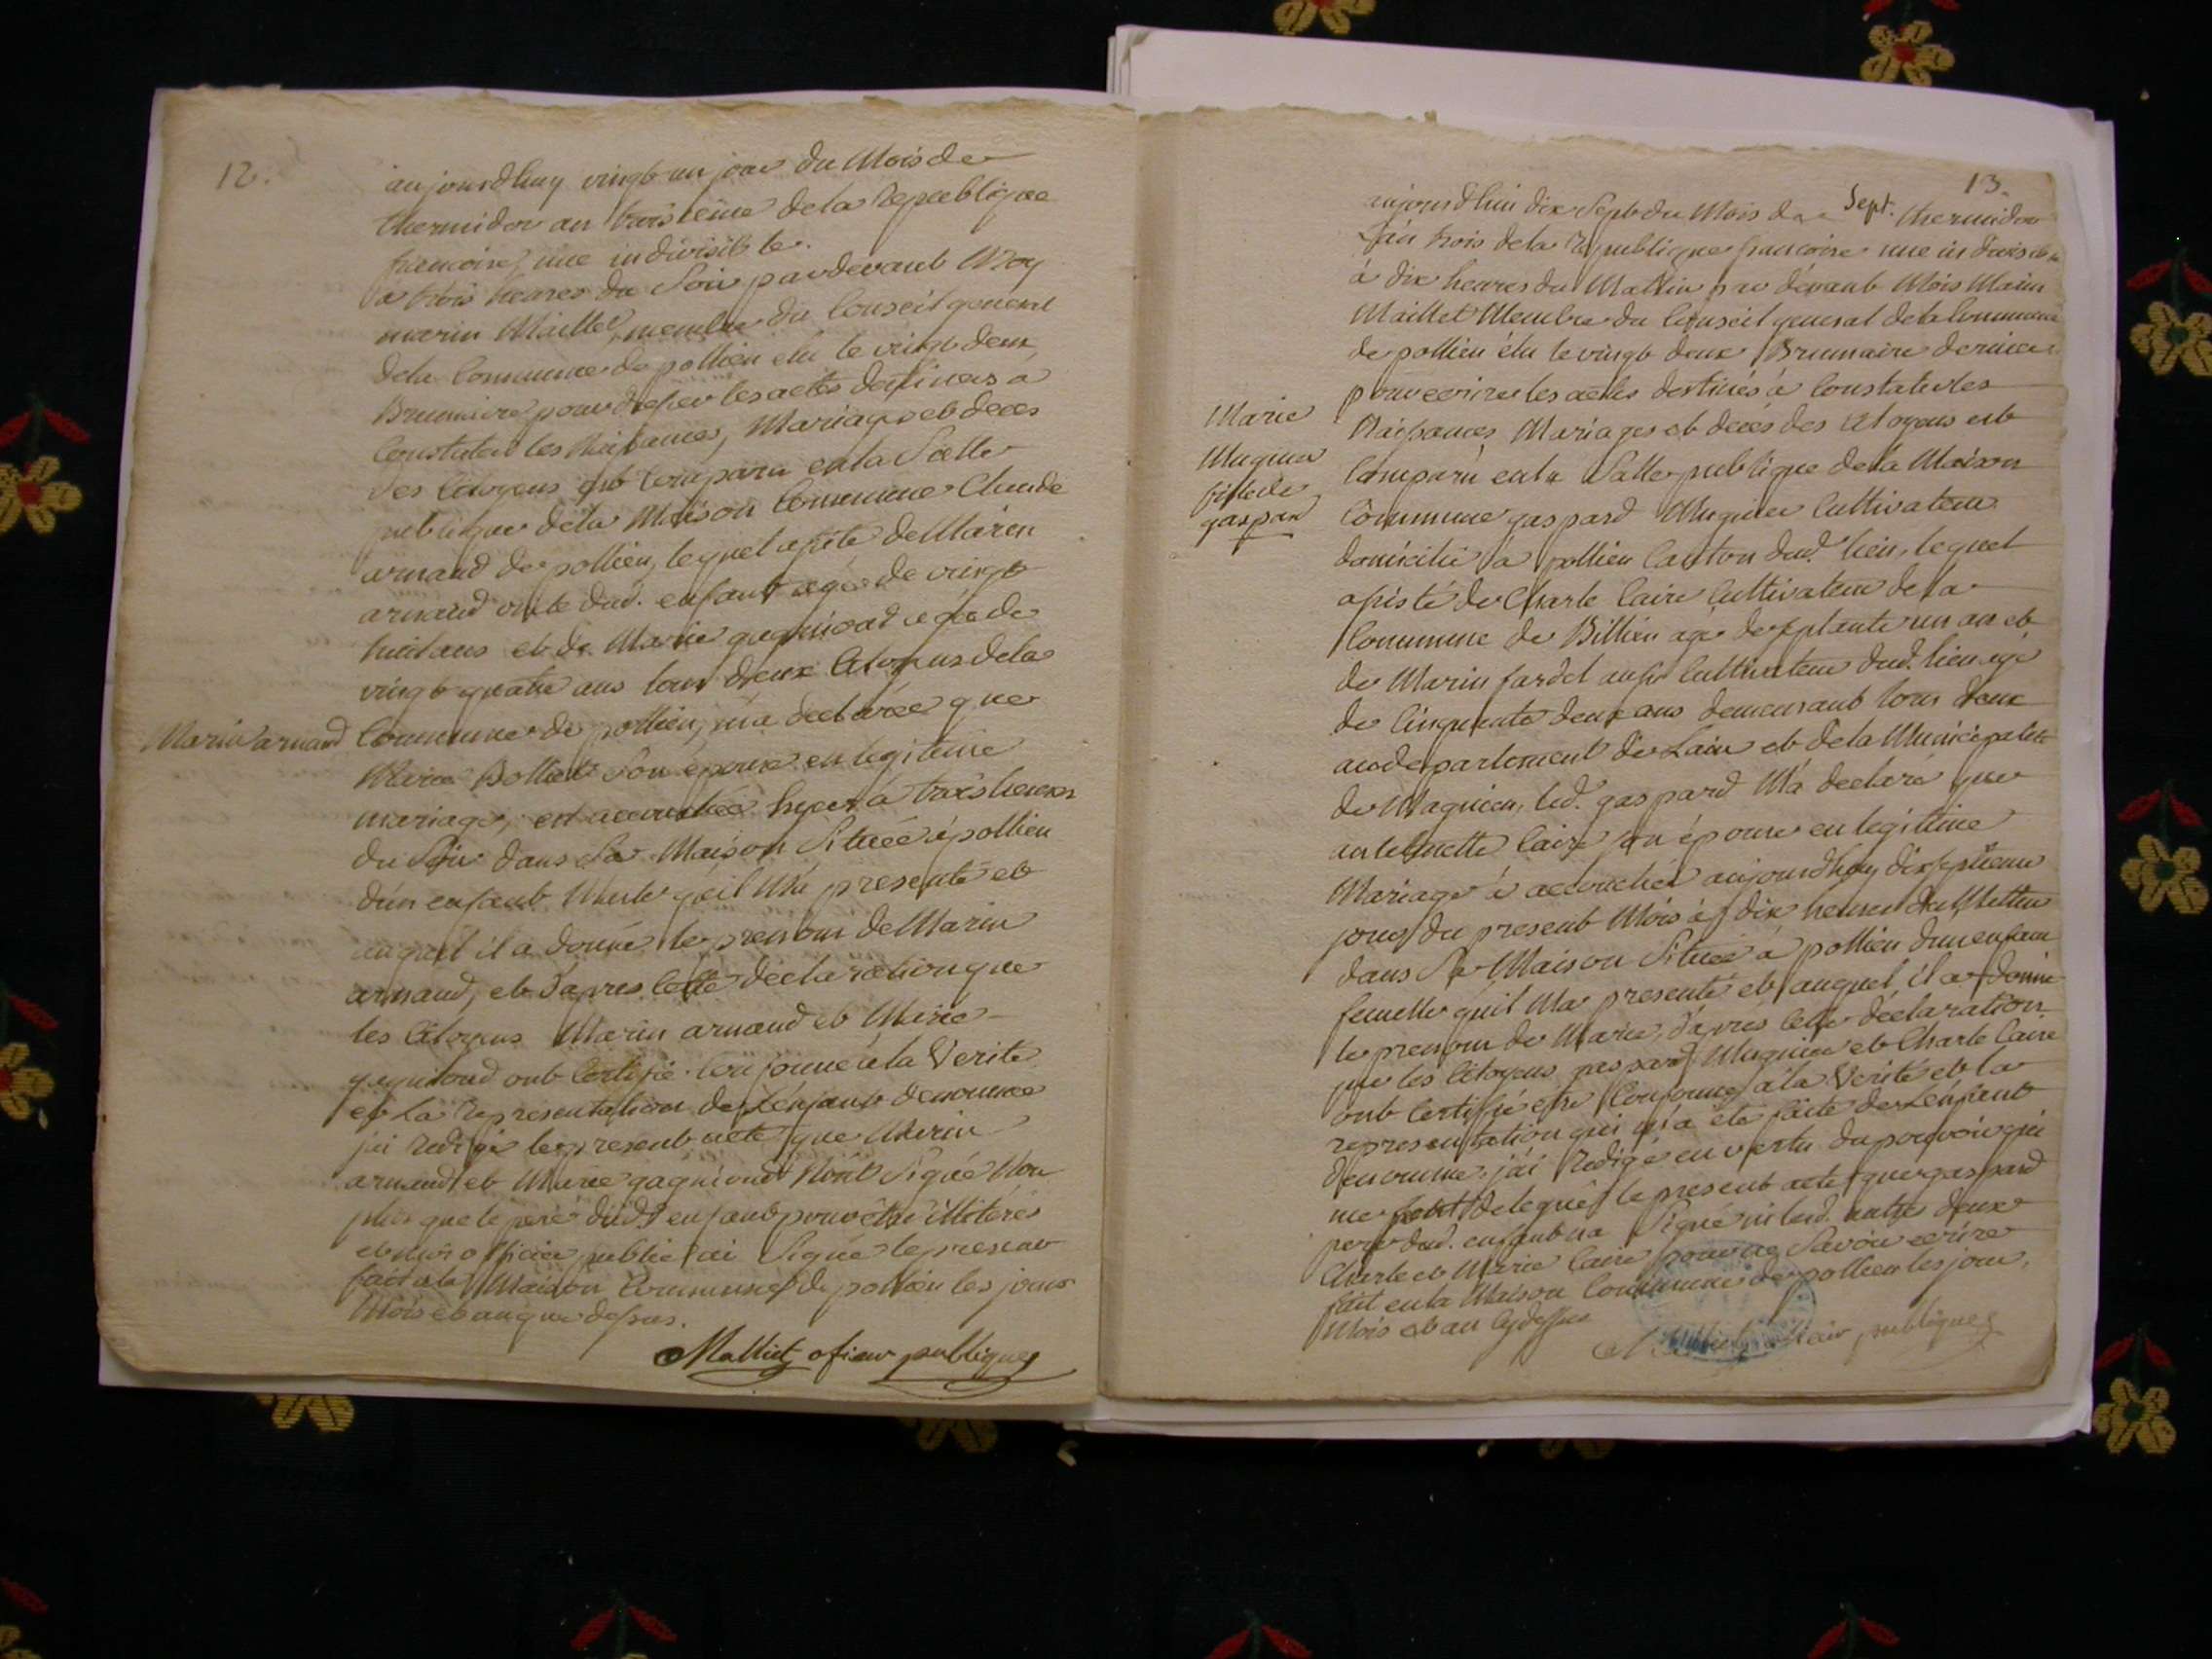 12.
aujourdhuy vingt un jour du Mois de
thermidor an troisieme de la Republique
francoise, une indivisible.
a trois heures du Soir pardevant Moy
marin Maillet, membre du Conseil general
de la Commune de pollieu elu le vingt deux
Brumaire pour dresser les actes destinees a
Constater les Naissances, Mariages et deces
des Citoyens est Comparu en la Salle
publique de la Maison Commune Claude
arnaud de pollieu, lequel assisté de Marin
arnaud dud. enfant agé de vingt
huit ans et de Marie gagnioud agée de
vingt quatre ans tous deux Citoyens de la
Marin arnaud
Commune de pollieu, m'a declarée que
Marie Bolliet Son épouse en legitime
mariage, est accouchée hyer a trois heures
du Soir dans Sa Maison Située a pollieu
d'un enfant Masle qu'il M'a presenté et
auquel il a donné le prenom de Marin
arnaud, et d'apres Cette declaration que
les Citoyens Marin arnaud et Marie
gagnioud ont Certifié Conforme a la Verite
et La Representation de L'enfant denommé
jai Redigé le present acte que Marin
arnaud et Marie gagnioud N'ont Signé Non
plus que le pere dud. enfant pour être illiterés
et moi officier public jai Signé le present
fait a la Maison Commune de pollieu les jour
Mois et an que dessus.
Malliet oficier publique
13.
aujourdhui dix Sept du Mois de Sept. thermidor
l'an trois de la Republique francoise une indivisible
à dix heures du Mattin par dévant Mois Marin
Maillet Membre du Conseil general de la Commune
de pollieu élu le vingt deux Brumaire dernier
pour ecrire les actes destinés à Constater les
Marie
Mugnier
fille de
gaspard
Naissances Mariages et decés des Citoyens est
Comparu en la Salle publique de la Maison
Commune gaspard Mugnier Cultivateur
domicilié à pollieu Canton dud. lieu, lequel
assisté de Charle Caire Cultivateur de la
Commune de Billieu agé de septante un an et
de Marin fardel aussi Cultivateur dud. lieu agé
de Cinquante deux ans demeurant tous deux
au departement de Lain et de la Municipalité
de Magnieu, led. gaspard M'a declaré que
antelmette Caire son épouse en legitime
Mariage à accouchée aujourdhuy dixseptieme
jour du present Mois à dix heures du Mattin
dans Sa Maison Située a pollieu d'un enfant
femelle qu'il Ma presenté et auquel il a donné
le prenom de Marie, d'apres Cette declaration
que les Citoyens gaspard Mugnier et Charle Caire
ont Certifié être Conforme a la Verité et la
representation qui m'a éte faite de L'enfant
denommé. j'ai Redigé en vertu du pouvoir qui
me sont delegués le present acte que gaspard
pere dud. enfant na Signé ni lesd. autre deux
Charle et Marie Caire pour ne Savoir ecrire
fait en la Maison Commune de pollieu les jour,
Mois et an Cydessus
Malliet oficier publique